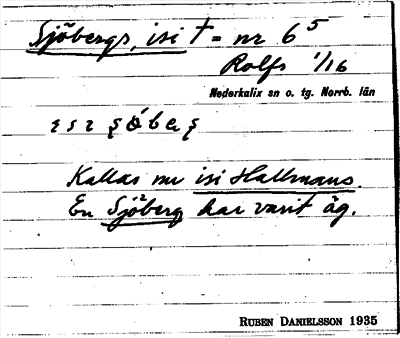 Sjöbergs, isi † = nr 6⁵
Rolfs 1/16
Nederkalix sn o. tg. Norrb. län
Kallas nu isi Hallmans.
En Sjöberg har varit äg.
RUBEN DANIELSSON 1935